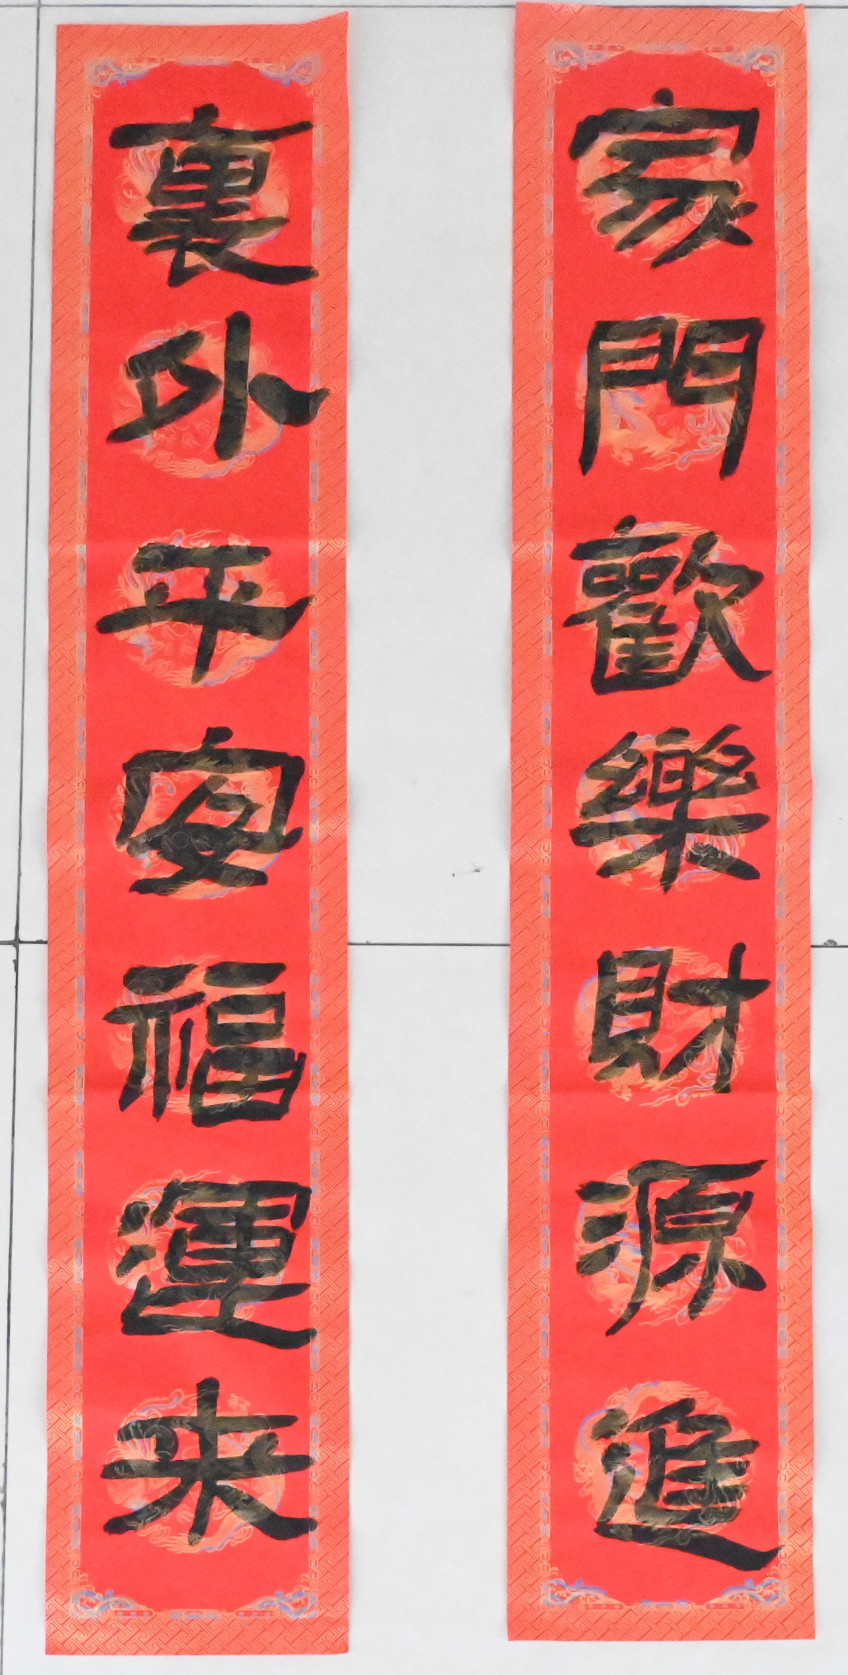 家門歡樂財源進
裏外平安福運来